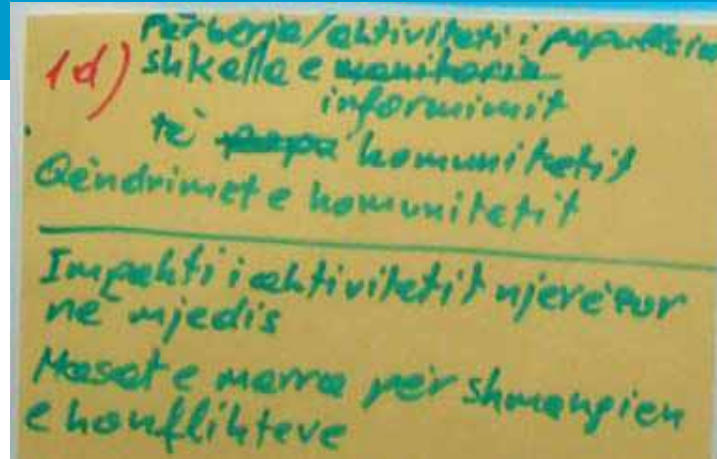 Përbërja/aktiviteti i popullsisë
1d) shkalla e monitorim
informimit
të popu komunitetit
Qëndrimet e komunitetit
Impakti i aktivitetit njerëzor
ne mjedis
Masat e marra për shmangien
e konflikteve